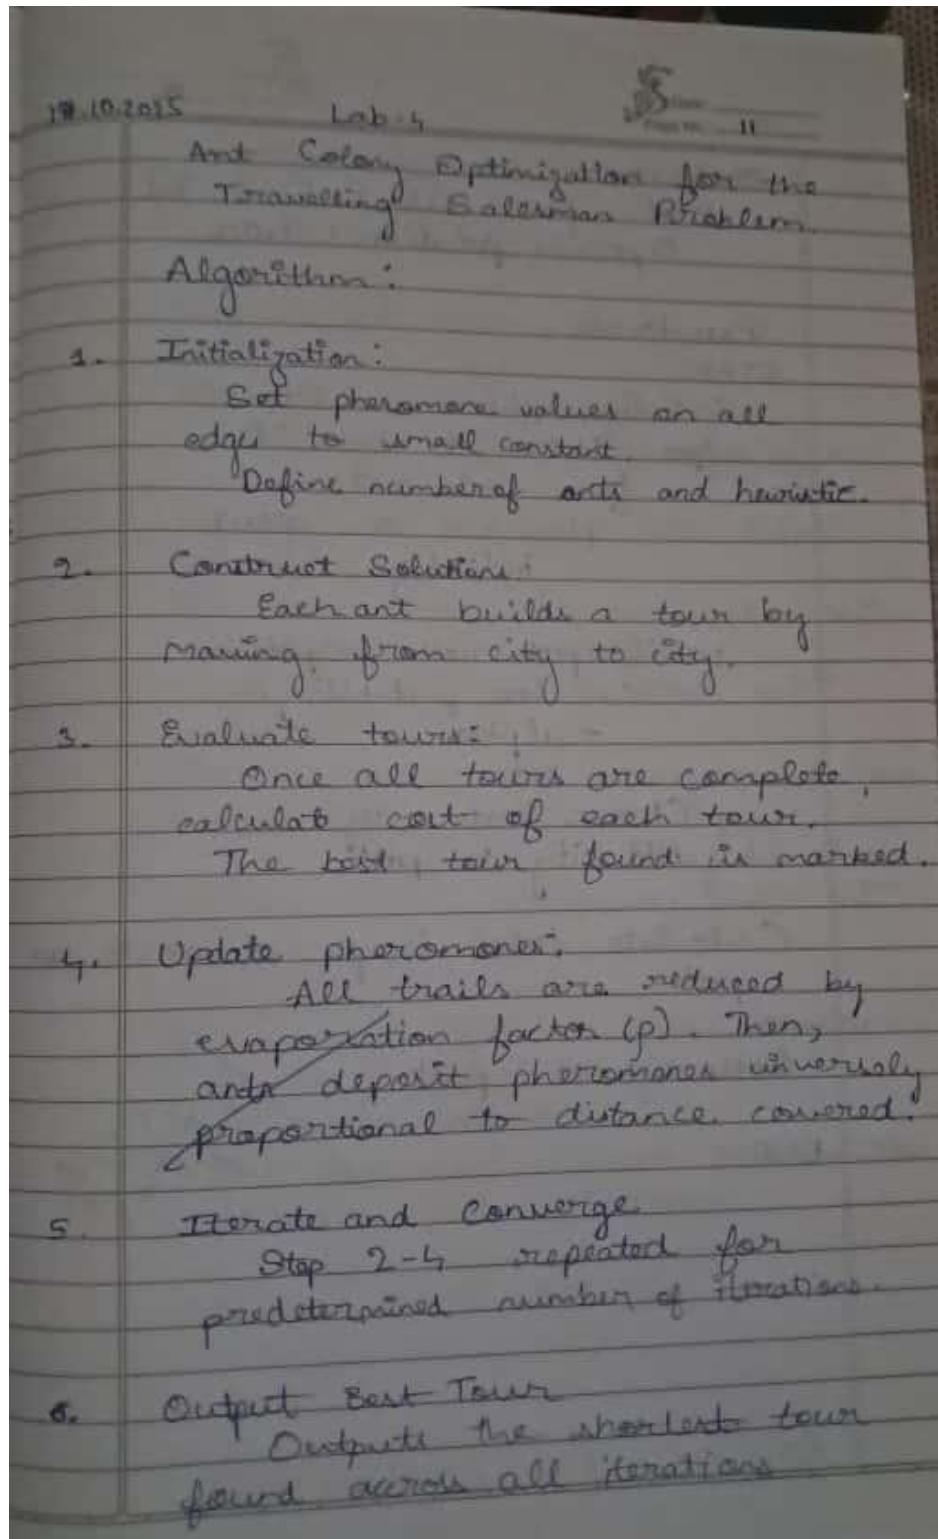 17.10.2025 Lab-4
11
Ant Colony Optimization for the
Travelling Salesman Problem.
Algorithm:
1. Initialization:
Set pheromone values on all
edge to small constant.
Define number of ants and heuristic.
2. Construct Solutions:
Each ant builds a tour by
moving from city to city.
3. Evaluate tours:
Once all tours are complete,
calculate cost of each tour.
The best tour found is marked.
4. Update pheromones:
All trails are reduced by
evaporation factor (p). Then,
ants deposit pheromones inversely
proportional to distance covered.
5. Iterate and Converge
Step 2-4 repeated for
predetermined number of iterations.
6. Output Best Tour
Outputs the shortest tour
found accross all iterations